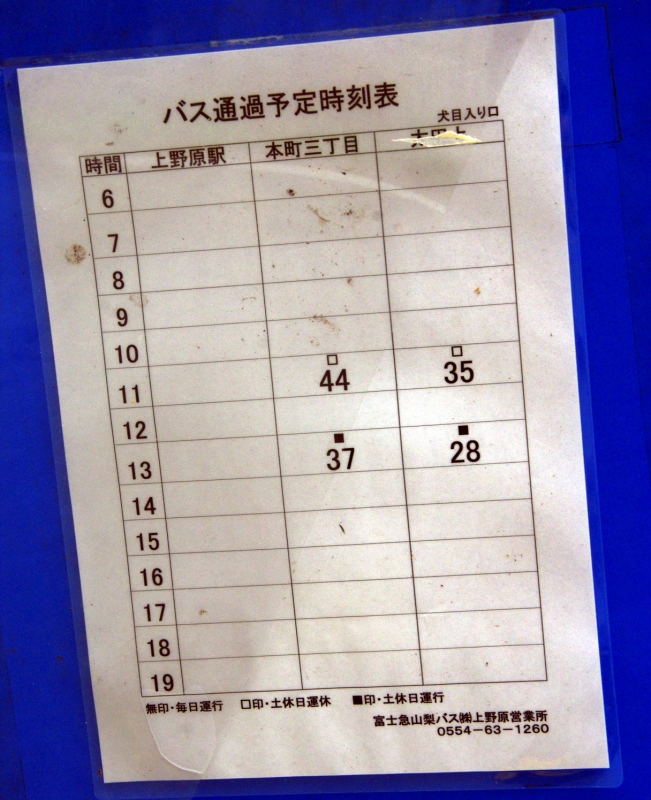 バス通過予定時刻表
犬目入り口
時間 上野原駅 本町三丁目
6
7
8
9
10
11 □44 □35
12
13 ■37 ■28
14
15
16
17
18
19
無印・毎日運行 □印・土休日運休 ■印・土休日運行
富士急山梨バス㈱上野原営業所
0554-63-1260